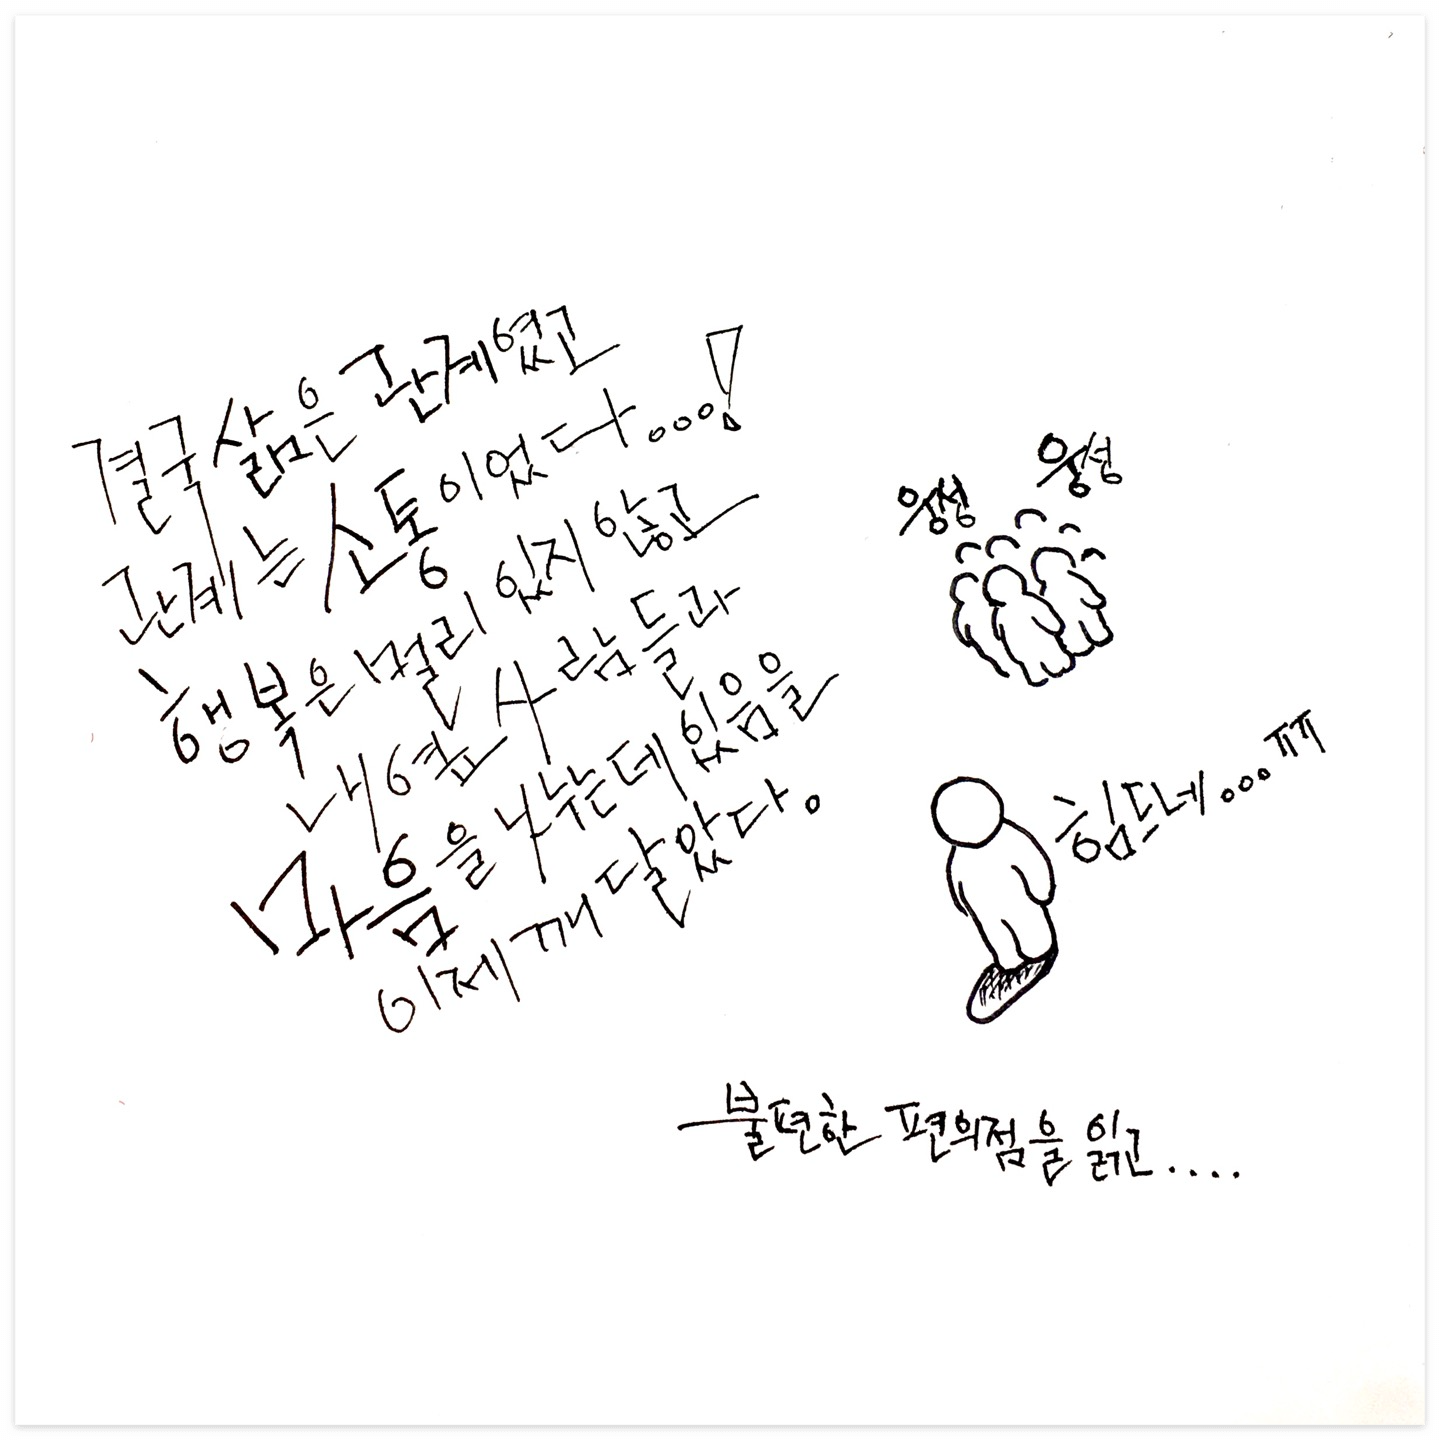 결국 삶은 관계였고
관계는 소통이었다...!
행복은 멀리 있지 않고
내 옆 사람들과
마음을 나누는데 있음을
이제 깨달았다.
웅성
웅성
힘드네...ㅠㅠ
불편한 편의점을 읽고....